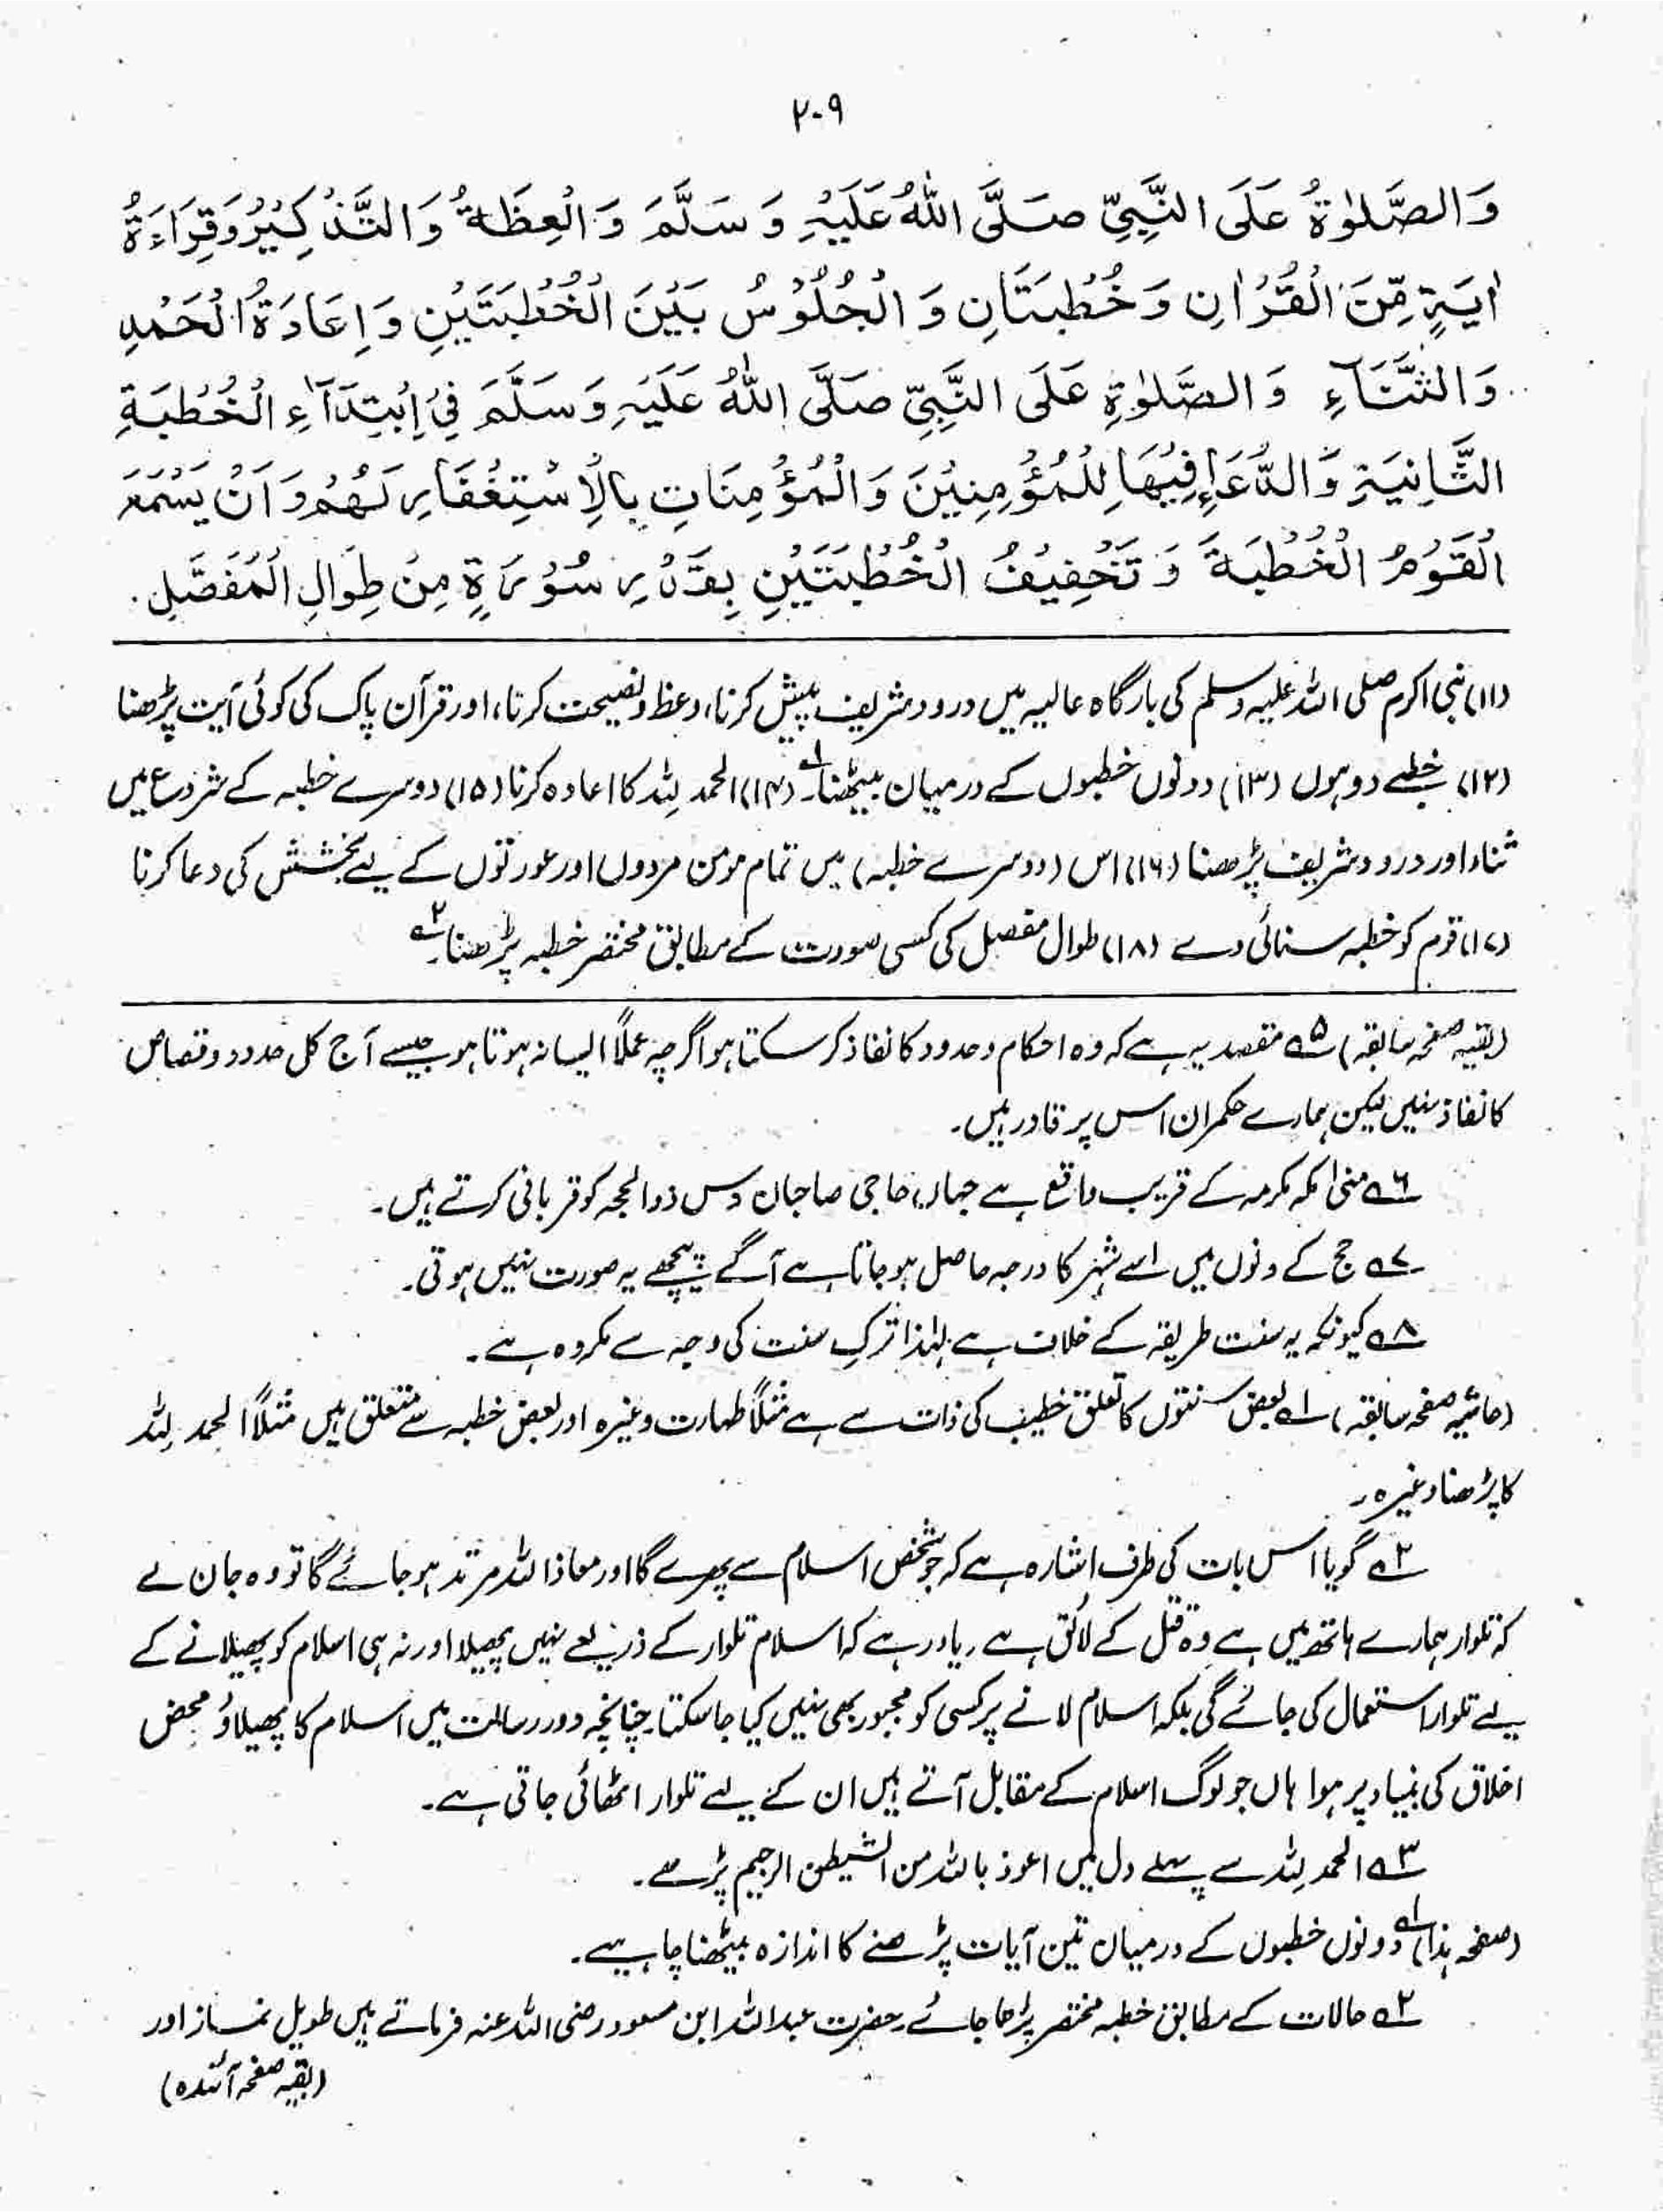 ۲۰۹
وَالصَّلٰوةُ عَلَى النَّبِيِّ صَلَّى اللّٰهُ عَلَيْهِ وَسَلَّمَ وَالْعِظَةُ وَالتَّذْكِيْرُ وَقِرَاءَةُ
اٰيَةٍ مِّنَ الْقُرْاٰنِ وَخُطْبَتَانِ وَالْجُلُوْسُ بَيْنَ الْخُطْبَتَيْنِ وَاِعَادَةُ الْحَمْدِ
وَالثَّنَآءِ وَالصَّلٰوةِ عَلَى النَّبِيِّ صَلَّى اللّٰهُ عَلَيْهِ وَسَلَّمَ فِيْ اِبْتِدَآءِ الْخُطْبَةِ
الثَّانِيَةِ وَالدُّعَاءِ فِيْهَا لِلْمُؤْمِنِيْنَ وَالْمُؤْمِنَاتِ بِالْاِسْتِغْفَارِ لَهُمْ وَاَنْ يَسْمَعَ
الْقَوْمُ الْخُطْبَةَ وَتَخْفِيْفُ الْخُطْبَتَيْنِ بِقَدْرِ سُوْرَةٍ مِنْ طِوَالِ الْمُفَصَّلِ.
(۱۱) نبی اکرم صلی اللہ علیہ وسلم کی بارگاہ عالیہ میں درود شریف پیش کرنا، وعظ و نصیحت کرنا، اور قرآن پاک کی کوئی آیت پڑھنا
(۱۲) خطبے دو ہوں (۱۳) دونوں خطبوں کے درمیان بیٹھنا۱ے (۱۴) الحمد للہ کا اعادہ کرنا (۱۵) دوسرے خطبہ کے شروع میں
ثناء اور درود شریف پڑھنا (۱۶) اس (دوسرے خطبہ) میں تمام مومن مردوں اور عورتوں کے لیے بخشش کی دعا کرنا
(۱۷) قوم کو خطبہ سنائی دے (۱۸) طوال مفصل کی کسی صورت کے مطابق مختصر خطبہ پڑھنا۔۲ے
(بقیہ صفحہ سابقہ) ۵ے مقصد یہ ہے کہ وہ احکام و حدود کا نفاذ کر سکتا ہو اگرچہ عملاً ایسا نہ ہوتا ہو جیسے آج کل حدود و قصاص
کا نفاذ نہیں لیکن ہمارے حکمران اس پر قادر ہیں۔
۶ے منیٰ مکہ مکرمہ کے قریب واقع ہے جہاں حاجی صاحبان دس ذوالحجہ کو قربانی کرتے ہیں۔
۷ے حج کے دنوں میں اسے شہر کا درجہ حاصل ہو جاتا ہے آگے پیچھے یہ صورت نہیں ہوتی۔
۸ے کیونکہ یہ سنت طریقہ کے خلاف ہے لہٰذا ترکِ سنت کی وجہ سے مکروہ ہے۔
(حاشیہ صفحہ سابقہ) ۱ے بعض سنتوں کا تعلق خطیب کی ذات سے ہے مثلاً طہارت وغیرہ اور بعض خطبہ سے متعلق ہیں مثلاً الحمد للہ
کا پڑھنا وغیرہ۔
۲ے گویا اس بات کی طرف اشارہ ہے کہ جو شخص اسلام سے پھرے گا اور معاذ اللہ مرتد ہو جائے گا تو وہ جان لے
کہ تلوار ہمارے ہاتھ میں ہے وہ قتل کے لائق ہے۔ یاد رہے کہ اسلام تلوار کے ذریعے نہیں پھیلا اور نہ ہی اسلام کو پھیلانے کے
لیے تلوار استعمال کی جائے گی بلکہ اسلام لانے پر کسی کو مجبور بھی نہیں کیا جا سکتا۔ چنانچہ دور رسالت میں اسلام کا پھیلاؤ محض
اخلاق کی بنیاد پر ہوا ہاں جو لوگ اسلام کے مقابل آتے ہیں ان کے لیے تلوار اٹھائی جاتی ہے۔
۳ے الحمد للہ سے پہلے دل میں اعوذ باللہ من الشیطٰن الرجیم پڑھے۔
(صفحہ ہذا) ۱ے دونوں خطبوں کے درمیان تین آیات پڑھنے کا اندازہ بیٹھنا چاہیے۔
۲ے حالات کے مطابق خطبہ مختصر پڑھا جائے۔ حضرت عبداللہ ابن مسعود رضی اللہ عنہ فرماتے ہیں طویل نماز اور
(بقیہ صفحہ آئندہ)